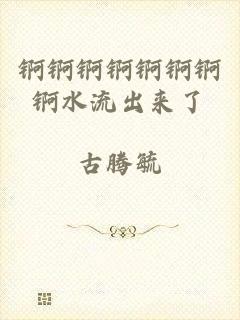 锕锕锕锕锕锕锕
锕水流出来了
古腾毓